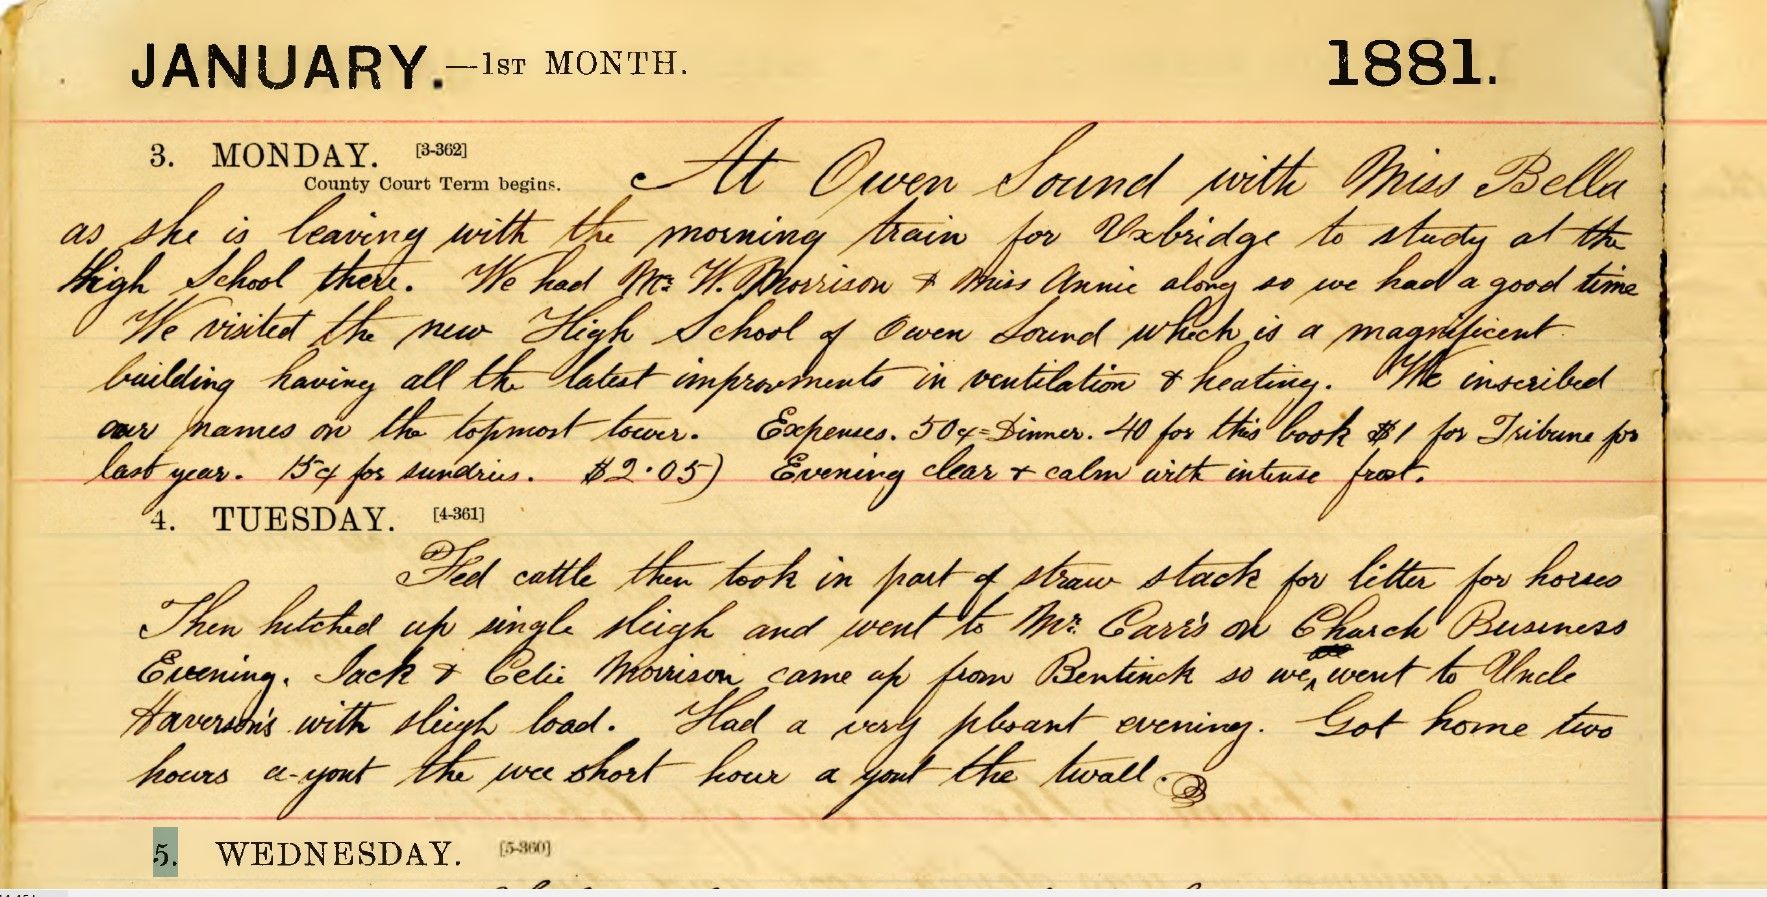 JANUARY.—1ST MONTH. 1881.
3. MONDAY. [3-362]
County Court Term begins.
At Owen Sound with Miss Bella
as she is leaving with the morning train for Uxbridge to study at the
High School there. We had Mr. W. Morrison & Miss Annie along so we had a good time
We visited the new High School of Owen Sound which is a magnificent
building having all the latest improvments in ventilation & heating. We inscribed
our names on the topmost tower. Expenses. 50¢=Dinner. 40 for this book $1 for Tribune for
last year. 15¢ for sundries. $2.05) Evening clear & calm with intense frost.
4. TUESDAY. [4-361]
Fed cattle then took in part of straw stack for litter for horses
Then hitched up single sleigh and went to Mr. Carr's on Church Business
Evening. Jack & Celie Morrison came up from Bentinck so we went to Uncle
Haverson's with sleigh load. Had a very plesant evening. Got home two
hours a-yont the wee short hour a yont the twall.
5. WEDNESDAY. [5-360]